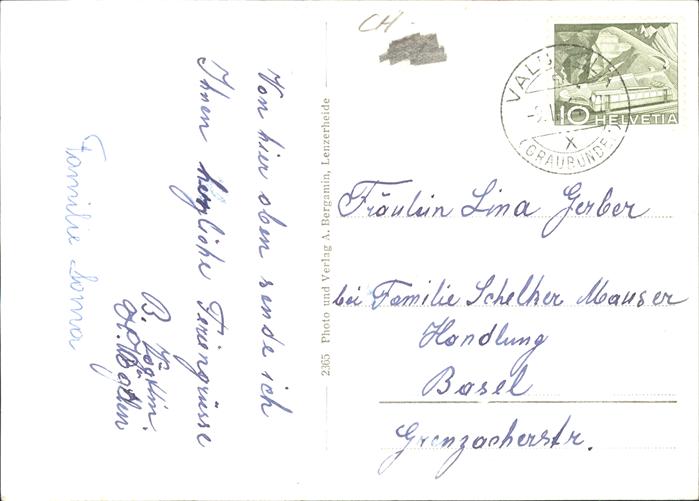 CH
10 HELVETIA
(GRAUBÜNDEN)
Von hier oben sende ich
Ihnen herzliche Feriengrüsse
B.
Familie
2365 Photo und Verlag A. Bergamin, Lenzerheide
Fräulein Lina Gerber
bei Familie Schelker Mauser
Handlung
Basel
Grenzacherstr.